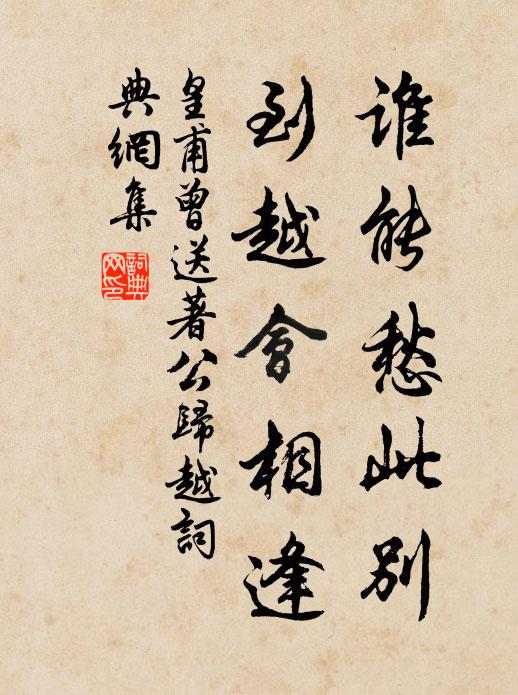 誰能愁此別
到越會相逢
皇甫曾送著公歸越詞
典網集
詞典
网印